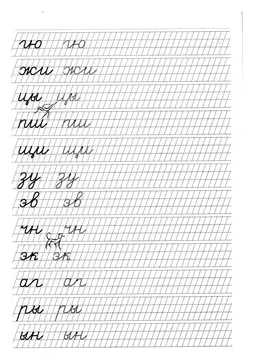 гю гю
жи жи
цы цы
пш пш
щи щи
зу зу
эв эв
чн чн
эк эк
аг аг
ры ры
ын ын